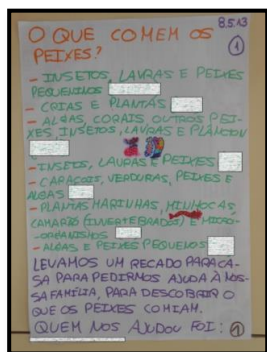 8.5.13
O QUE COMEM OS
PEIXES?
1
- INSETOS, LAVRAS E PEIXES
PEQUENINOS
- CRIAS E PLANTAS
- ALGAS, CORAIS, OUTROS PEI-
XES, INSETOS, LAVRAS E PLÂNCTON
- INSETOS, LAVRAS E PEIXES
- CARACÓIS, VERDURAS, PEIXES E
ALGAS
- PLANTAS MARINHAS, MINHOCAS,
CAMARÃO (INVERTEBRADOS) E MICRO-
-ORGANISMOS
- ALGAS E PEIXES PEQUENOS
LEVAMOS UM RECADO PARA CA-
SA PARA PEDIRMOS AJUDA À NOS-
SA FAMÍLIA, PARA DESCOBRIR O
QUE OS PEIXES COMIAM.
QUEM NOS AJUDOU FOI:
1